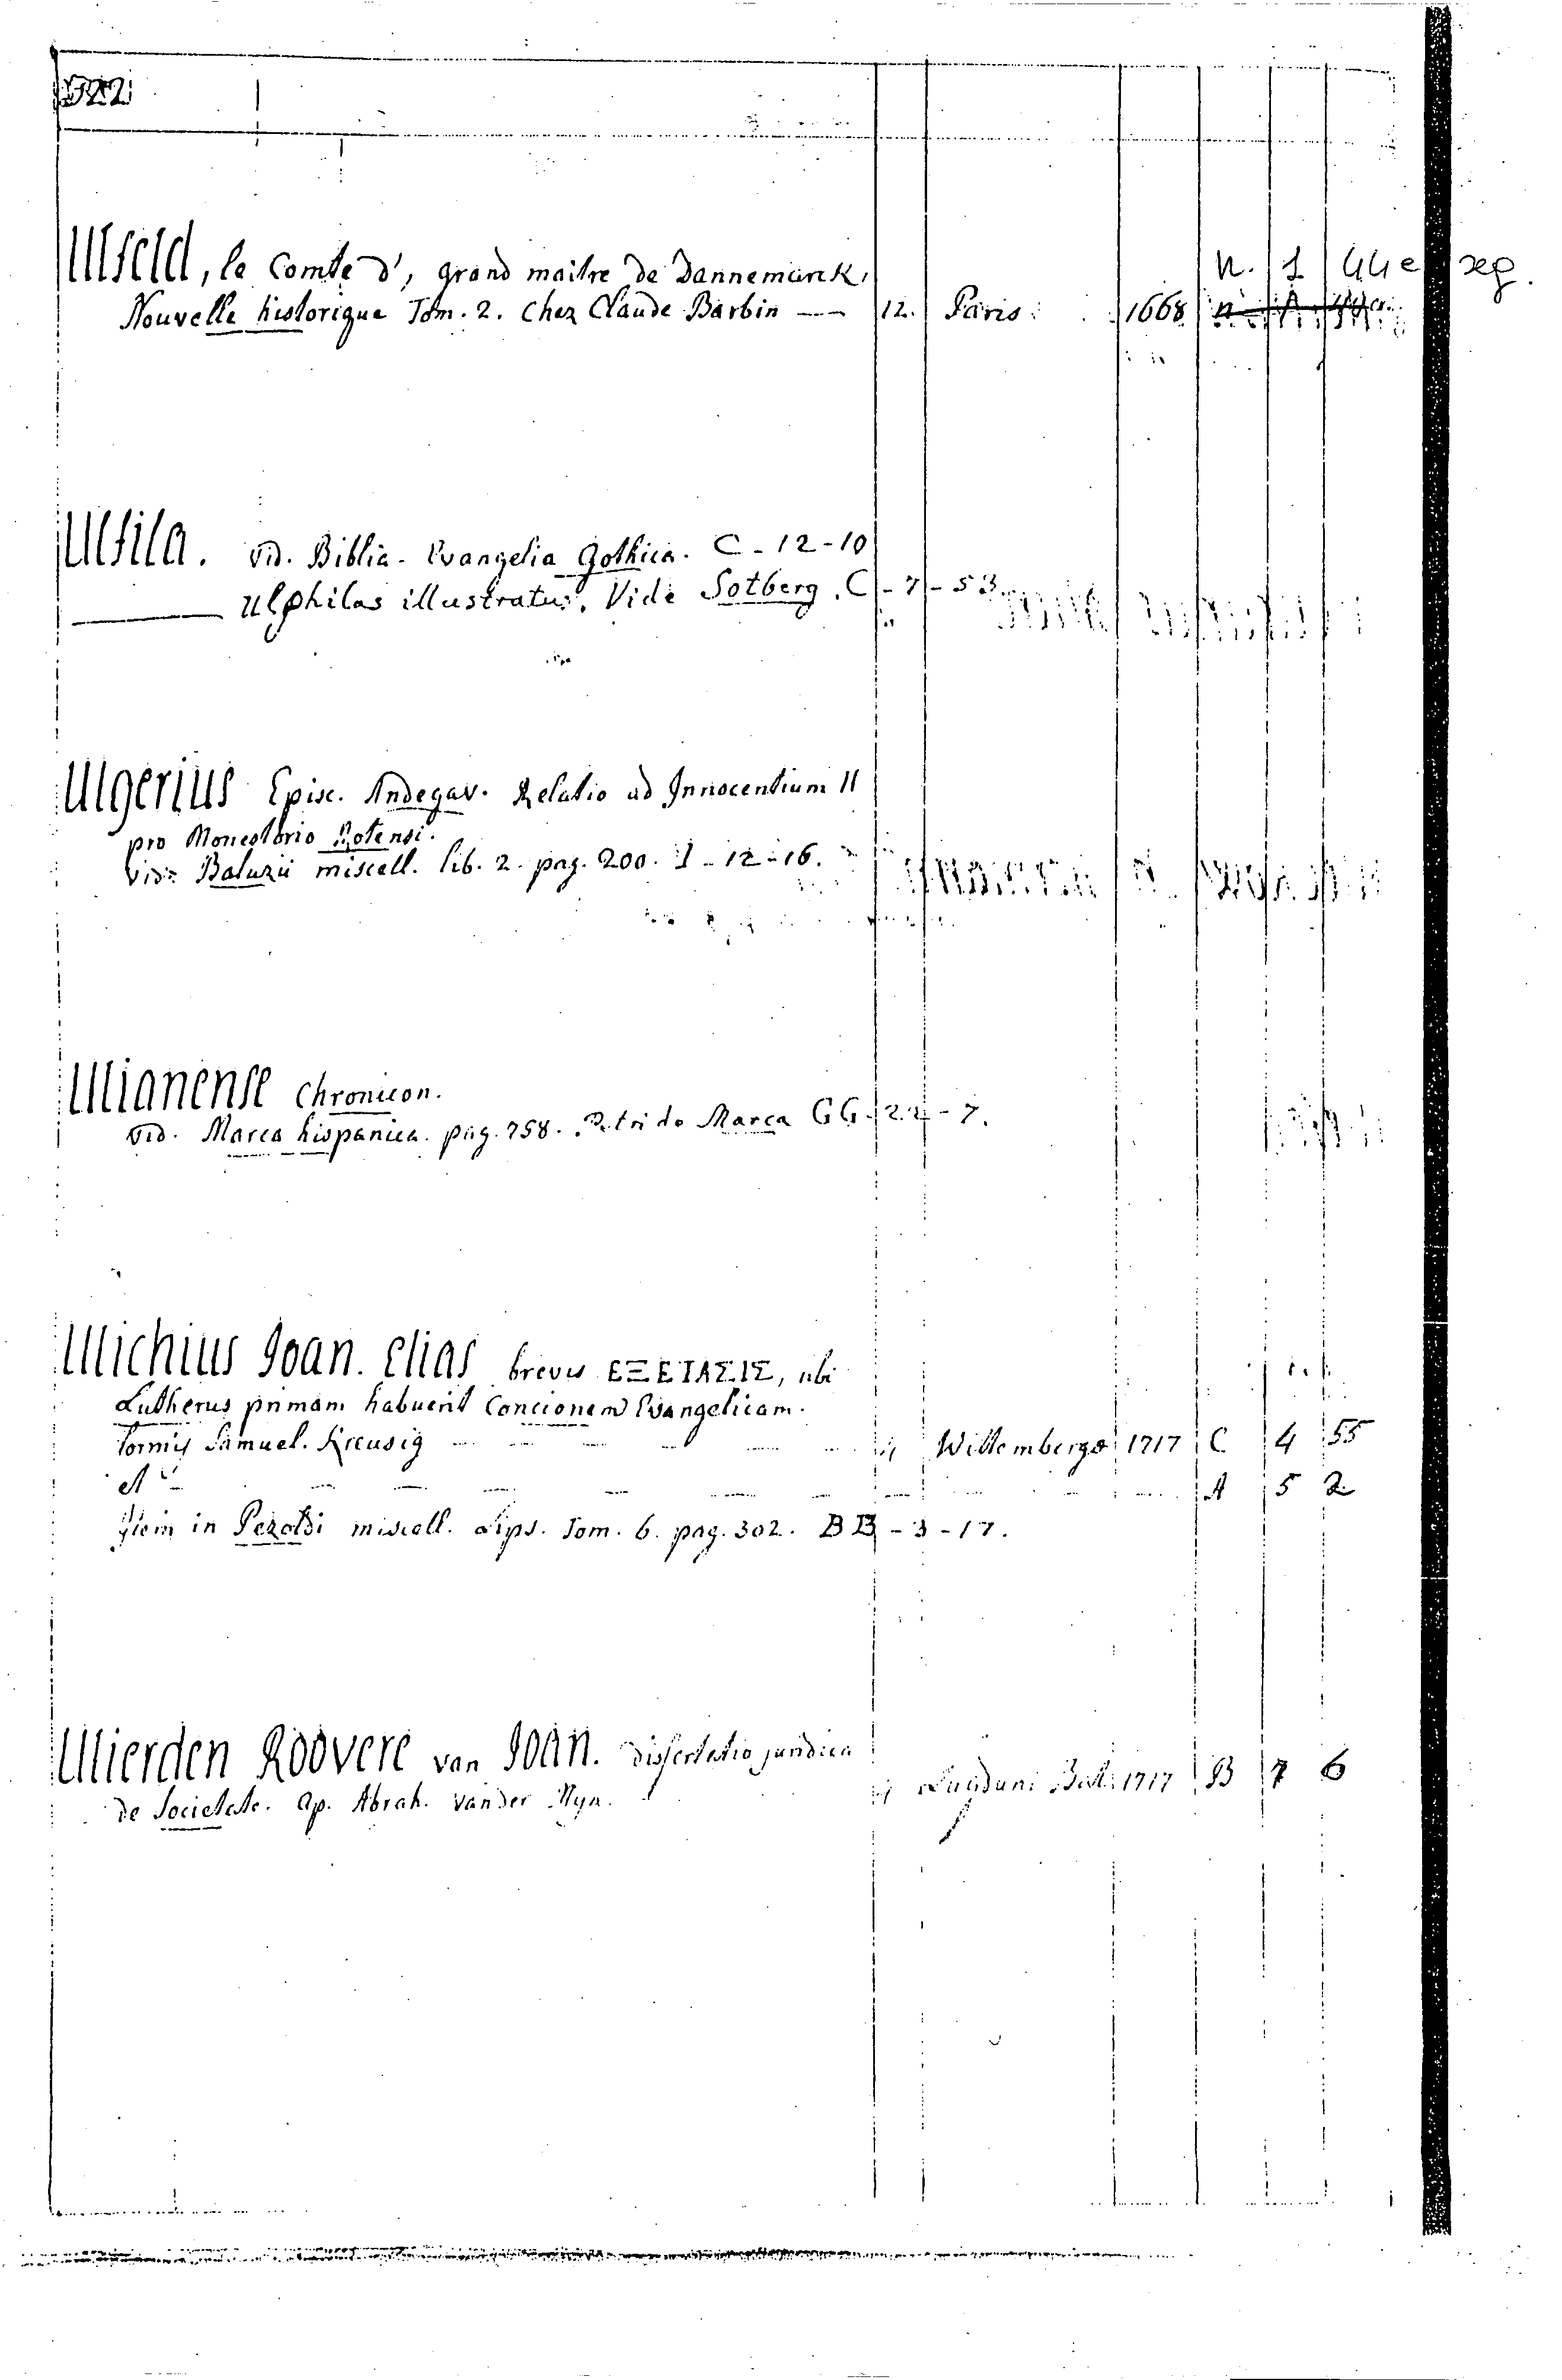 Ulfeld, le Comte d', grand maitre de Dannemarck, N. 1 44 e seg.
Nouvelle historique Tom. 2. Chez Claude Barbin — 12. Paris 1668
Ulfila. vid. Biblia. Evangelia Gothica. C - 12 - 10
——— Ulphilas illustratus. Vide Sotberg. C - 7 - 53.
Ulgerius Episc. Andegav. Relatio ad Innocentium II
pro Monesterio Rotensi.
vide Baluzii miscell. lib. 2. pag. 200. I - 12 - 16.
Ulianense Chronicon.
vid. Marca hispanica. pag. 758. Petri de Marca GG - 22 - 7.
Ulichius Joan. Elias brevis ΕΞΕΤΑΣΙΣ, ubi
Lutherus primam habuerit Concionem Evangelicam.
Formis Samuel. Kreusig Wittembergæ 1717 C 4 55
et A 5 2
Item in Pezoldi miscell. Lips. Tom. 6. pag. 302. BB - 3 - 17.
Ulierden Roovere van Joan. Dissertatio juridica
de Societate. ap. Abrah. vander Myn. Lugduni Bat. 1717 B 7 6